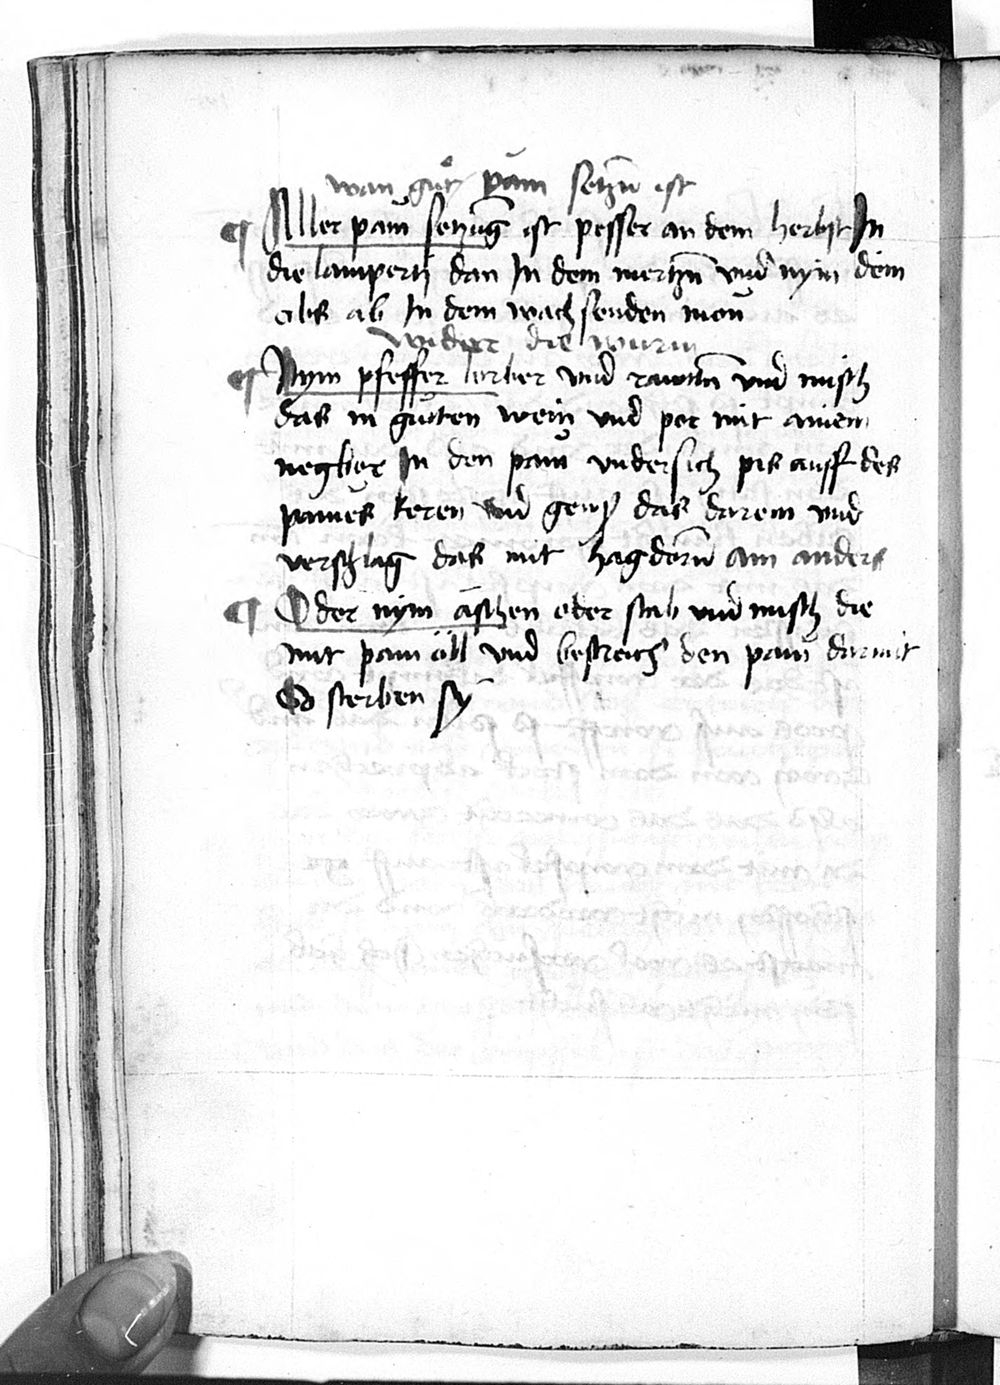 wan gůt päm setzn̄ ist
¶ Aller pam̄ setzūg ist pesser an dem herbst In
die lamperti dan In dem mertzn̄ vnd nym dem
obs ab In dem wachsenden mon̄
Wider die würm
¶ Nym pfeffer lorber vnd misch
das in gůten wein vnd por mit ainem
negber In den pam̄ vndersich pis auff des
pames keren vnd gews das darein vnd
verschlag das mit hagdorn̄ am anders
¶ Oder nym äschen oder stub vnd misch die
mit pam öll vnd bestreich den pam̄ darmit
So sterben sÿ